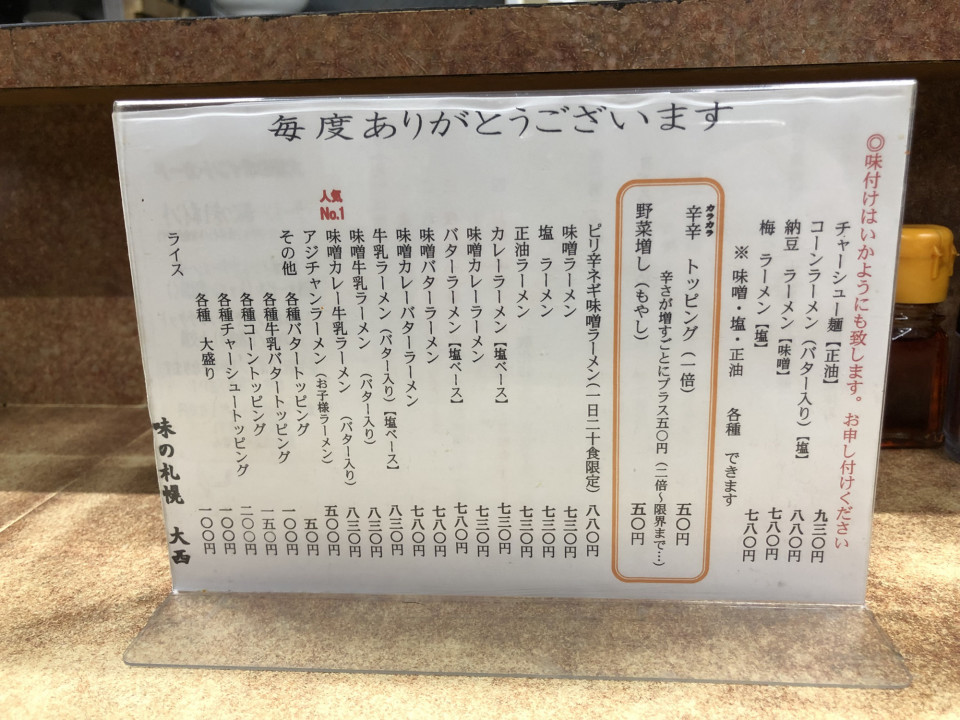 毎度ありがとうございます
◎味付けはいかようにも致します。お申し付けください
チャーシュー麺【正油】 九三〇円
コーンラーメン（バター入り）【塩】 八八〇円
納豆 ラーメン【味噌】 七八〇円
梅 ラーメン【塩】 七八〇円
※ 味噌・塩・正油 各種 できます
カラカラ
辛辛 トッピング（一倍） 五〇円
辛さが増すごとにプラス五〇円（二倍～限界まで…）
野菜増し（もやし） 五〇円
ピリ辛ネギ味噌ラーメン（一日二十食限定） 八八〇円
味噌ラーメン 七三〇円
塩 ラーメン 七三〇円
正油ラーメン 七三〇円
カレーラーメン【塩ベース】 七三〇円
味噌カレーラーメン 七三〇円
バターラーメン【塩ベース】 七八〇円
味噌バターラーメン 七八〇円
味噌カレーバターラーメン 七八〇円
牛乳ラーメン（バター入り）【塩ベース】 八三〇円
味噌牛乳ラーメン（バター入り） 八三〇円
人気
No.1
味噌カレー牛乳ラーメン（バター入り） 八三〇円
アジチャンラーメン（お子様ラーメン） 五〇〇円
その他 各種バタートッピング 五〇円
各種牛乳バタートッピング 一〇〇円
各種コーントッピング 一五〇円
各種チャーシュートッピング 二〇〇円
各種 大盛り 一〇〇円
ライス 一〇〇円
味の札幌 大西